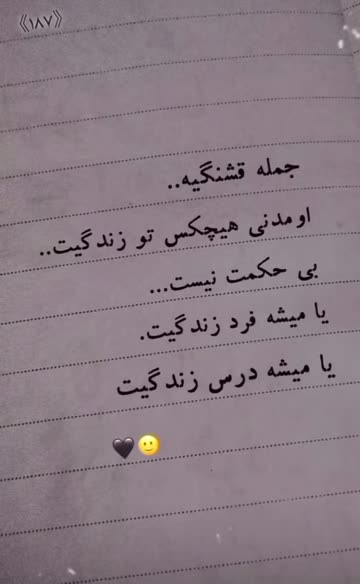 《۱۸۷》
جمله قشنگیه..
اومدنی هیچکس تو زندگیت..
بی حکمت نیست...
یا میشه فرد زندگیت.
یا میشه درس زندگیت
🖤🙂